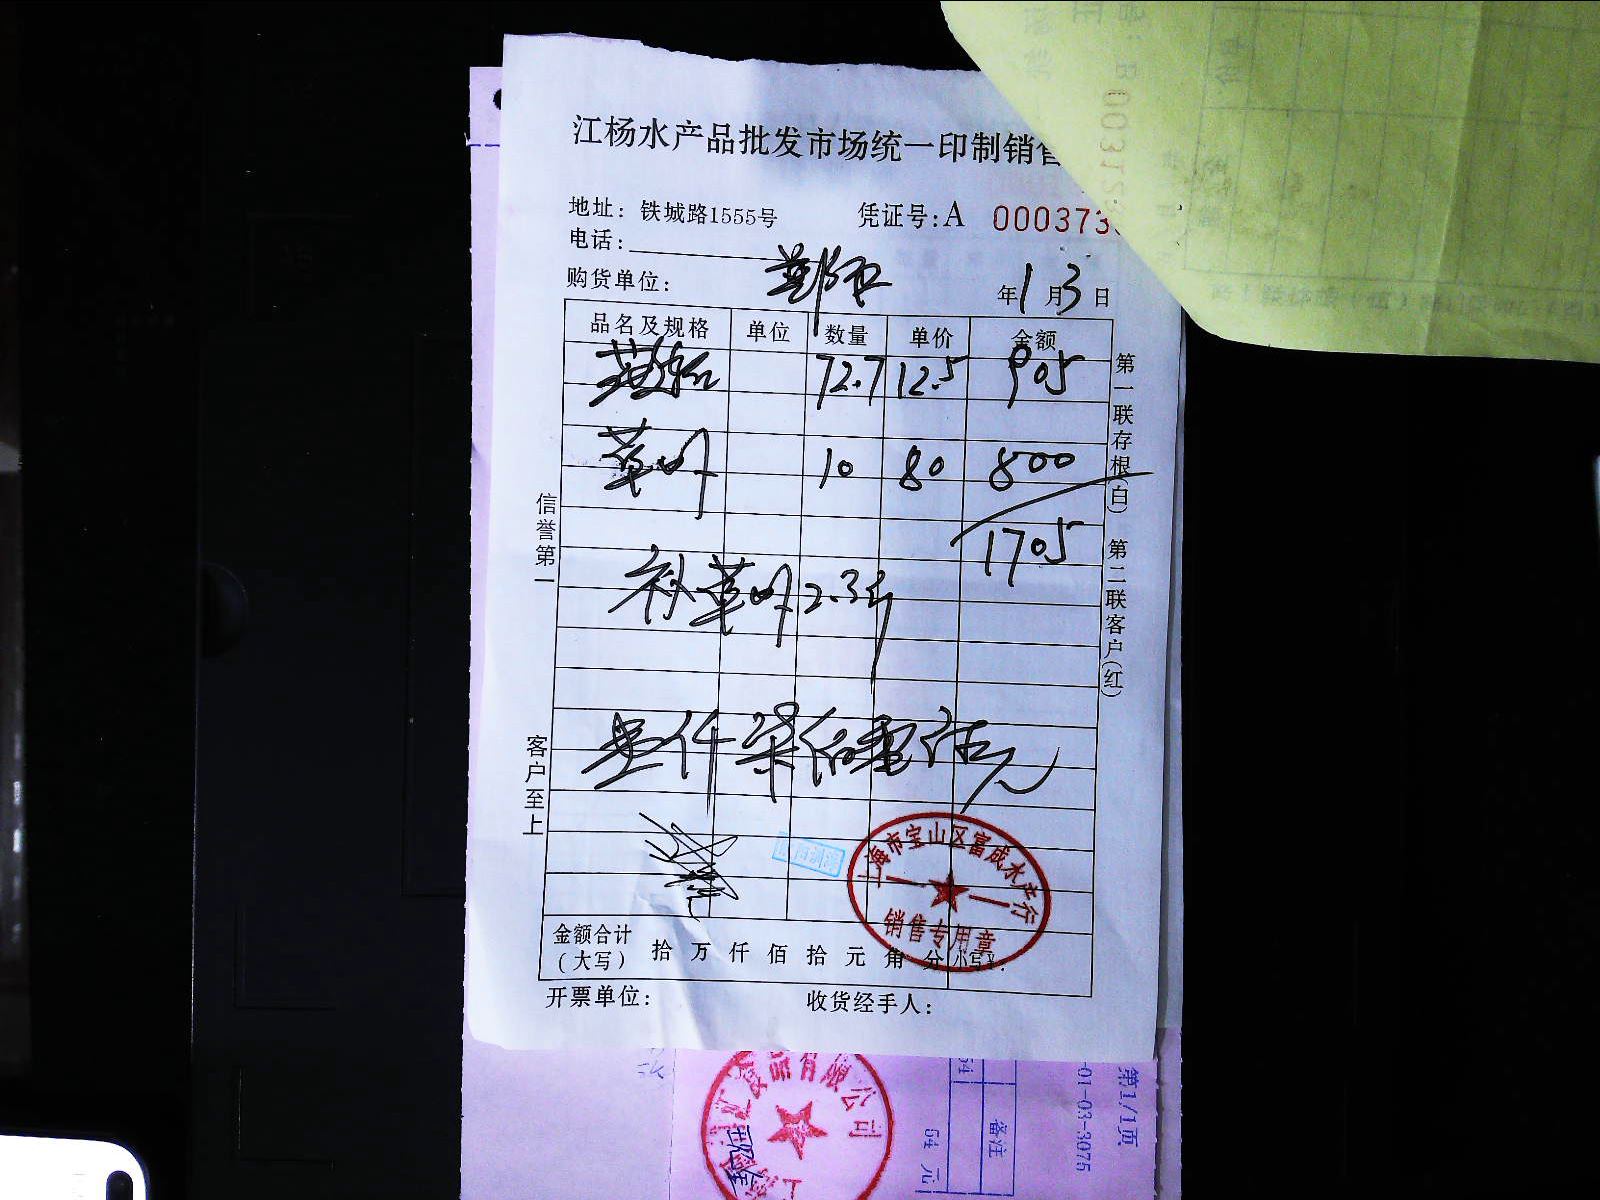 江杨水产品批发市场统一印制销售
地址：铁城路1555号
凭证号：A 000373
电话：
购货单位：
年1月3日
品名及规格 单位 数量 单价 金额
72.7 12.5 905
草虾 10 80 800
1705
补草虾2.3斤
壹仟柒佰零伍元
金额合计（大写） 拾 万 仟 佰 拾 元 角 分 小写¥
开票单位：
收货经手人：
信誉第一
客户至上
第一联存根（白） 第二联客户（红）
上海市宝山区富成水产行
销售专用章
食品有限公司
第1/1页
-01-03-3075
备注
54 元